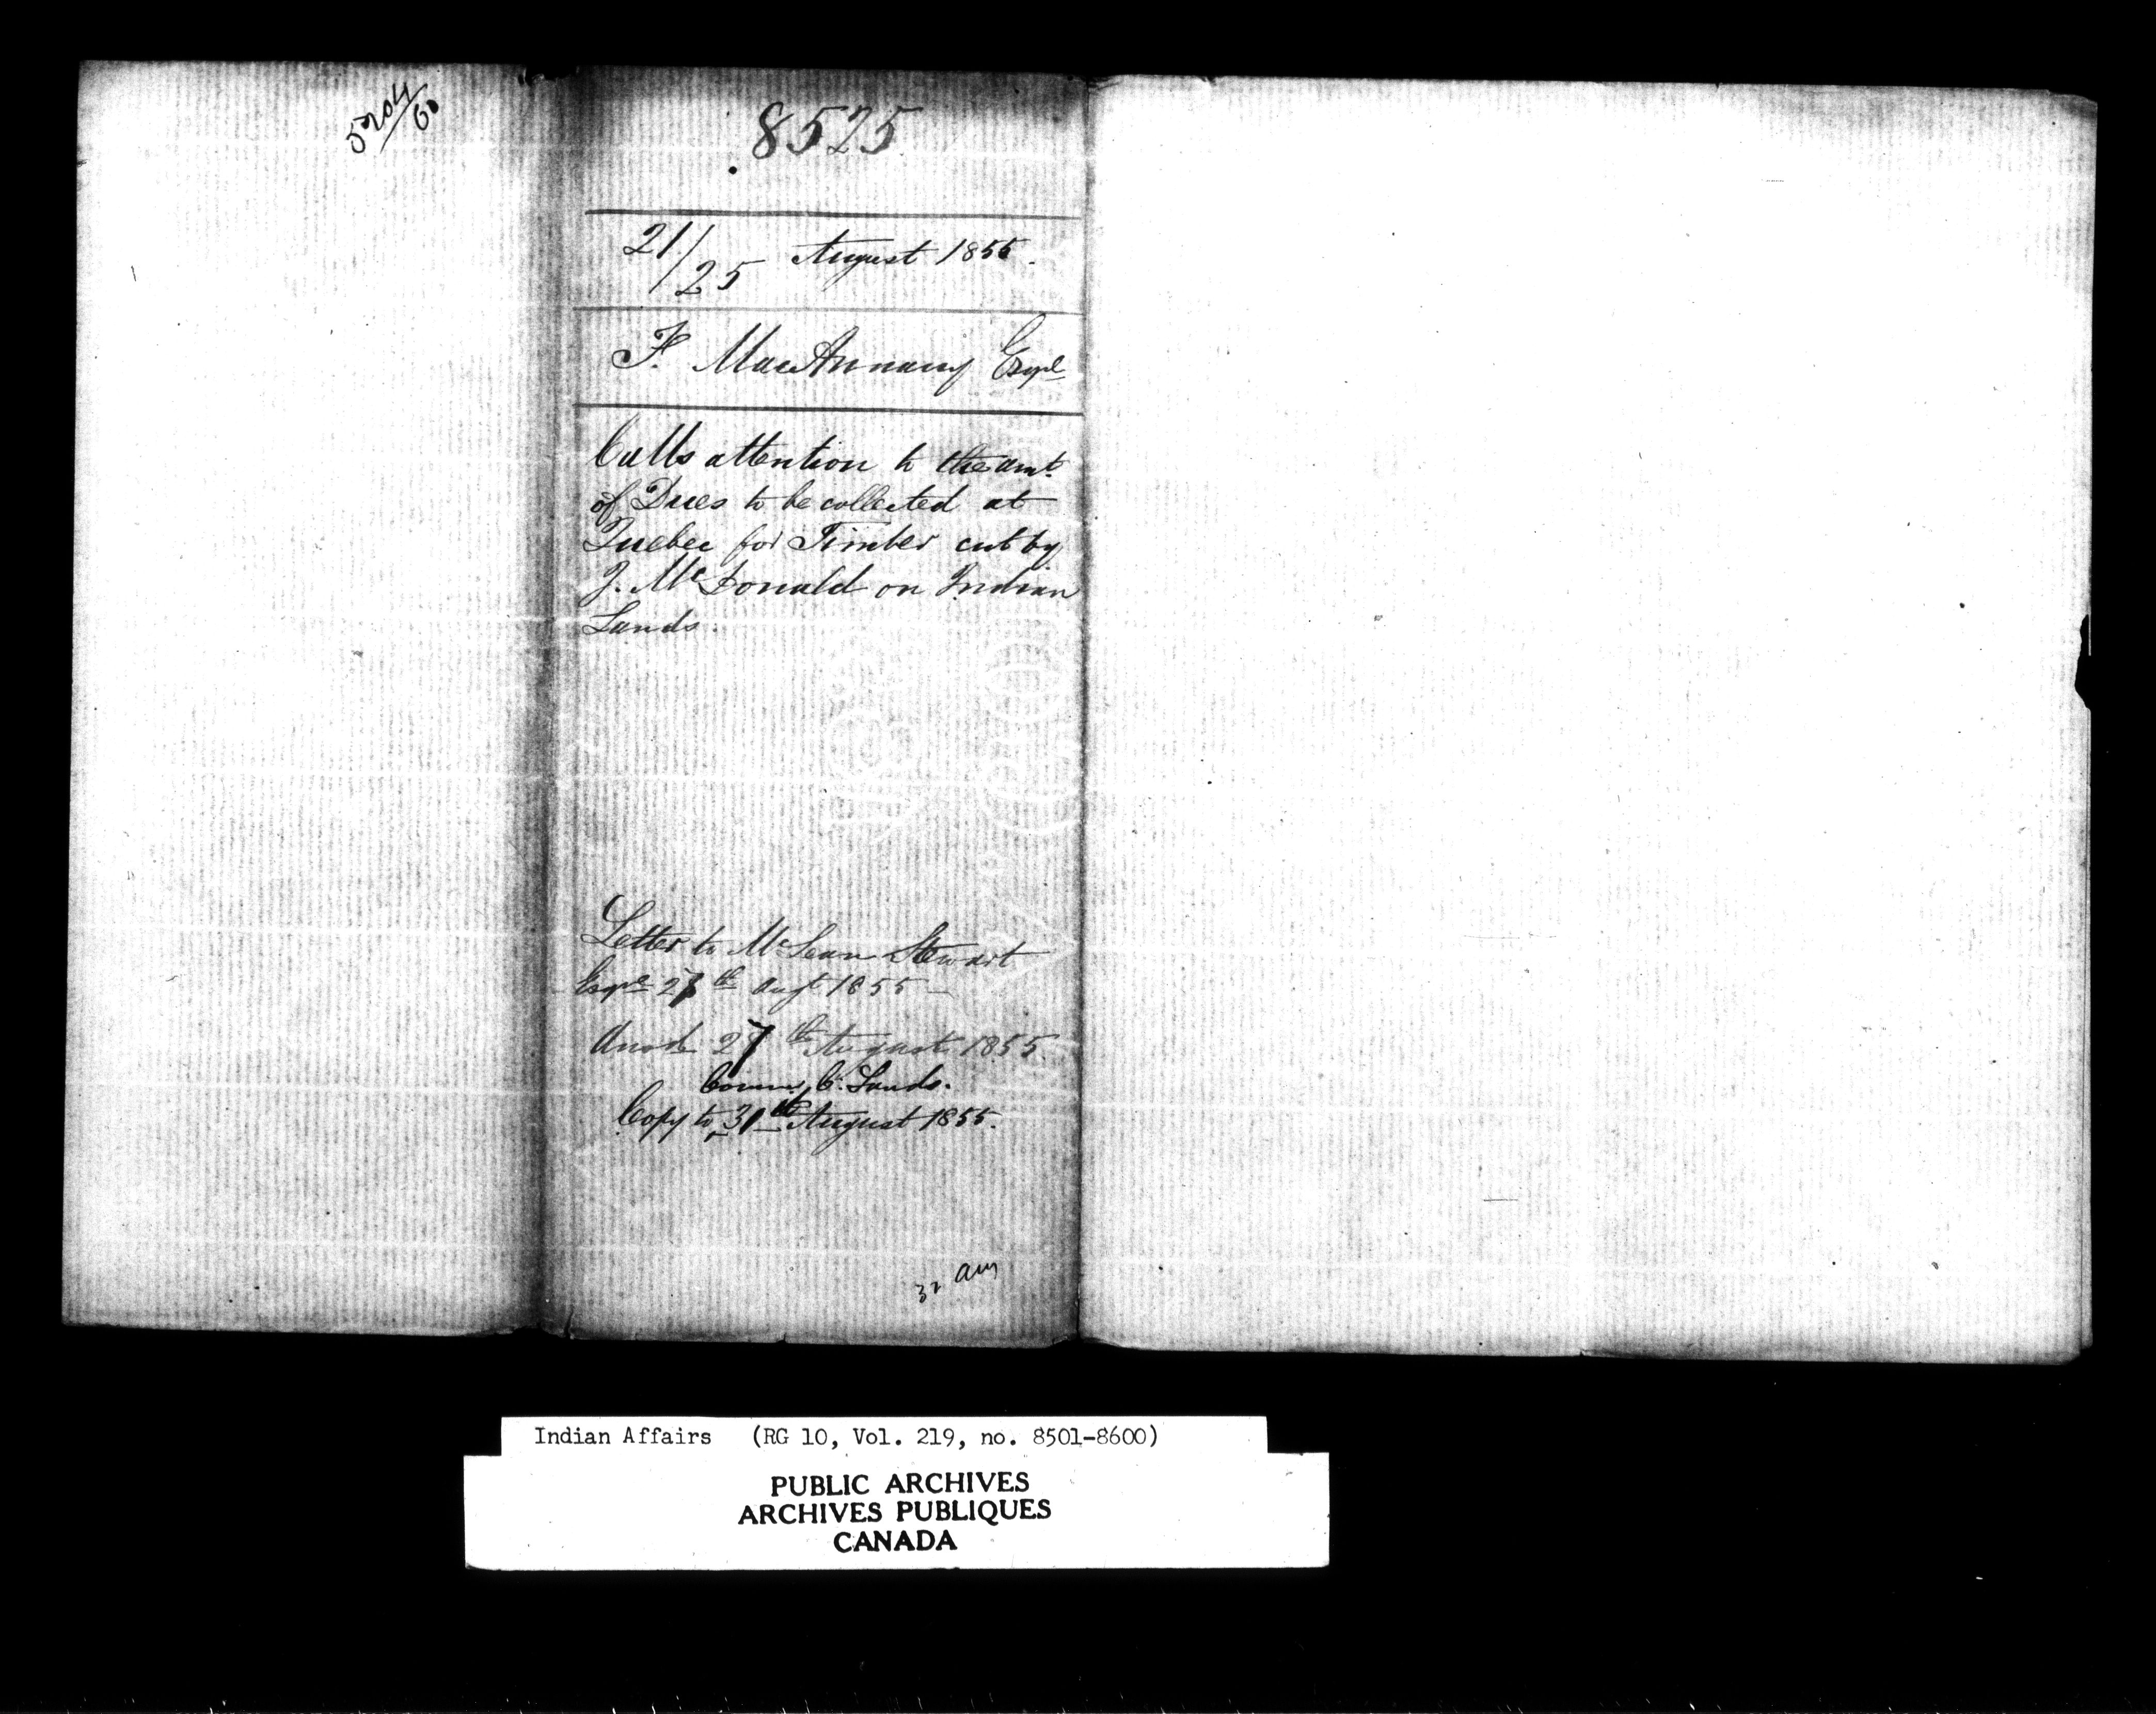 5204/60
8525
21/25 August 1855.
F. MacAnnany Esqre
Calls attention to the amt.
of Dues to be collected at
Quebec for Timber cut by
J. McDonald on Indian
Lands.
Letter to McLean Stewart
Esqre 27th Augt 1855 —
Ansd 27th August 1855.
Comm. C. Lands.
Copy to 31st August 1855.
Indian Affairs (RG 10, Vol. 219, no. 8501-8600)
PUBLIC ARCHIVES
ARCHIVES PUBLIQUES
CANADA